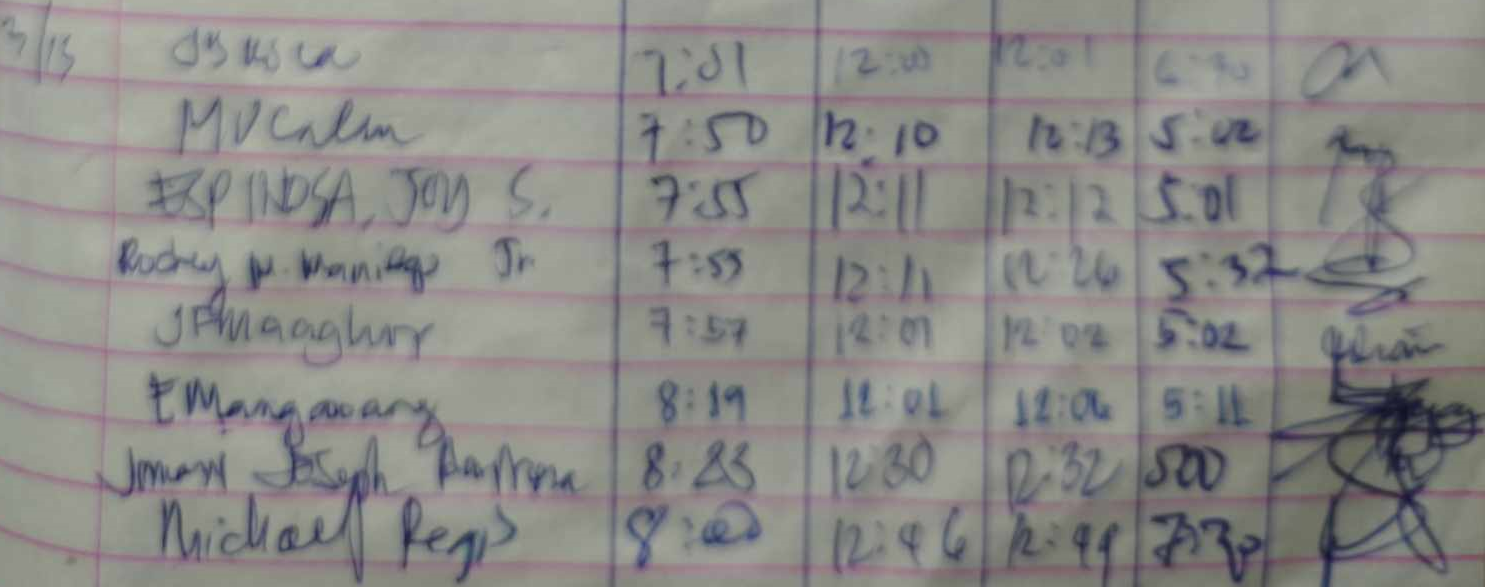 3/13 7:01 12:00 12:01
MVCalm 7:50 12:10 12:13 5:02
ESPINOSA, JOY S. 7:55 12:11 12:12 5:01
Rodney M. Maniego Jr 7:55 12:11 12:26 5:32
JFMaaghop 7:57 12:01 12:02 5:02
EMangawang 8:19 12:01 12:06 5:11
Joseph 8:23 12:30 12:32 500
Michael Regis 8:00 12:46 12:49 7:30